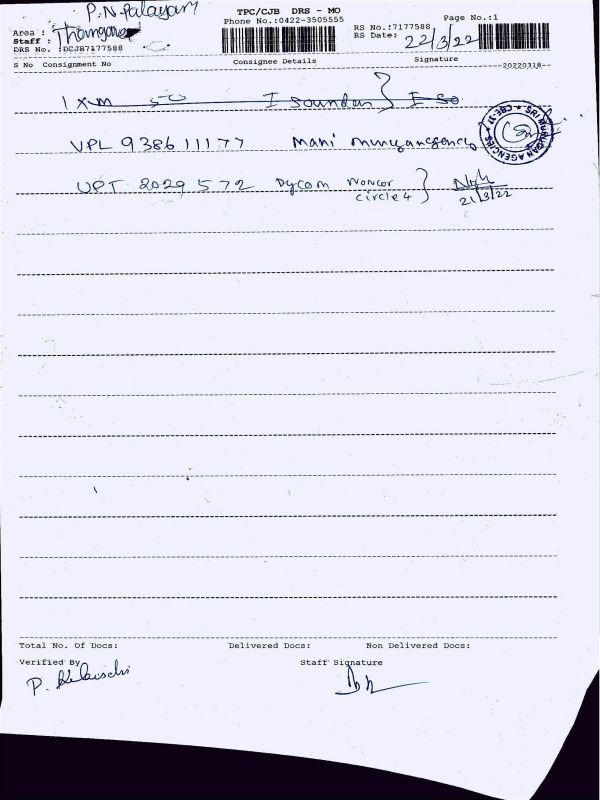 P.N.Palayam
TPC/CJB DRS - MO
Page No.:1
Area :
Phone No.:0422-3505555
RS No.:7177588
Staff :
RS Date: 22/3/22
DRS No. :DCJB7177588
S No Consignment No Consignee Details Signature --20220318--
VPL 938611177 Mani murugan agency
SRI MURUGAN AGENCIES ★ CBE-17 ★
UPT 2029572 Dycom
circle 4
21/3/22
Total No. Of Docs: Delivered Docs: Non Delivered Docs:
Verified By Staff Signature